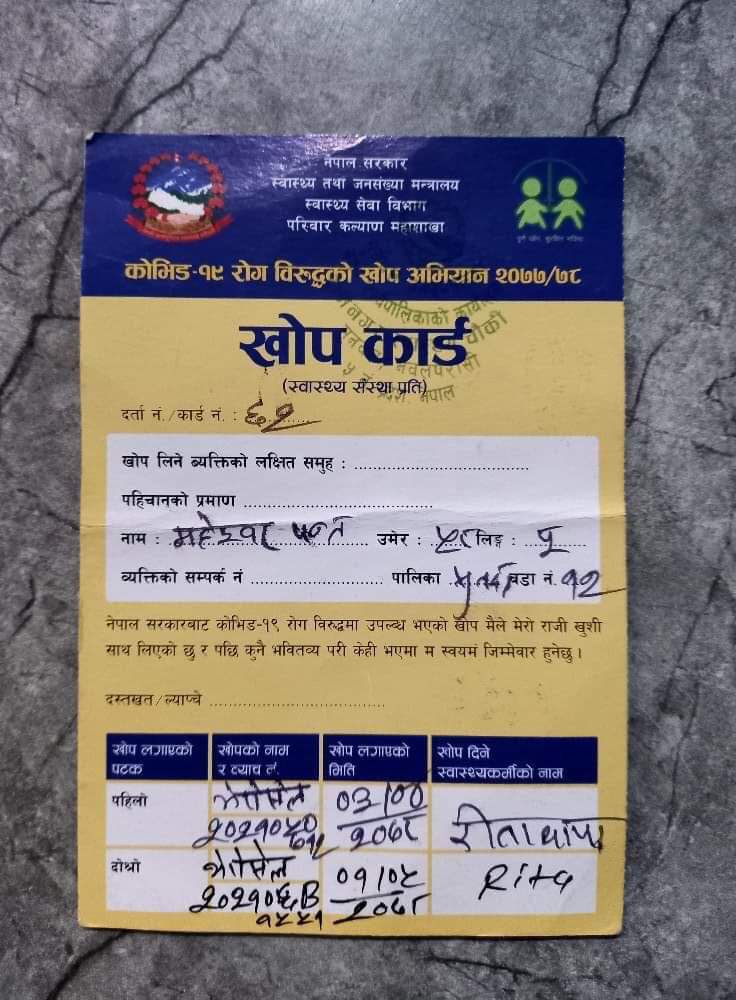 नेपाल सरकार
स्वास्थ्य तथा जनसंख्या मन्त्रालय
स्वास्थ्य सेवा विभाग
परिवार कल्याण महाशाखा
कोभिड-१९ रोग विरुद्धको खोप अभियान २०७७/७८
खोप कार्ड
(स्वास्थ्य संस्था प्रति)
नेपाल
दर्ता नं./कार्ड नं. : ६१
खोप लिने ब्यक्तिको लक्षित समुह :
पहिचानको प्रमाण
नाम : महेश्वर पन्त उमेर : ५८ लिङ्ग : पु
ब्यक्तिको सम्पर्क नं पालिका वडा नं. १२
नेपाल सरकारबाट कोभिड-१९ रोग विरुद्धमा उपल्ब्ध भएको खोप मैले मेरो राजी खुशी
साथ लिएको छु र पछि कुनै भवितव्य परी केही भएमा म स्वयमं जिम्मेवार हुनेछु ।
दस्तखत/ल्याप्चे
खोप लगाएको पटक
खोपको नाम र ब्याच नं.
खोप लगाएको मिति
खोप दिने स्वास्थ्यकर्मीको नाम
पहिलो भेरोसेल
२०७८
रीता थापा
दोश्रो भेरोसेल
०१/०५
२०७८
Rita